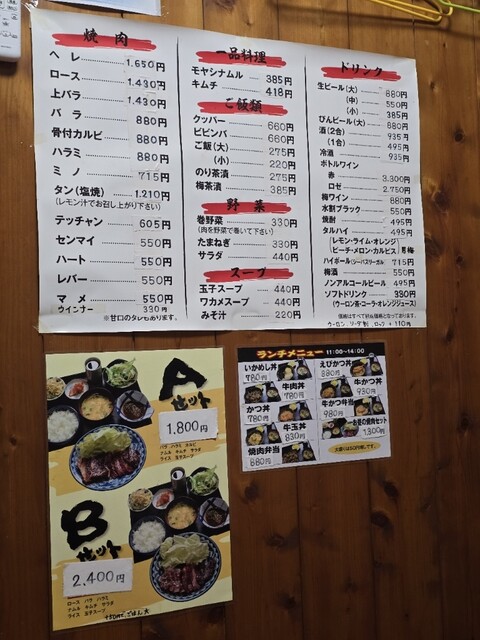 焼肉
ヘレ 1,650円
ロース 1,430円
上バラ 1,430円
バラ 880円
骨付カルビ 880円
ハラミ 880円
ミノ 715円
タン(塩焼) 1,210円
(レモン汁でお召し上がり下さい)
テッチャン 605円
センマイ 550円
ハート 550円
レバー 550円
マメ 550円
ウインナー 330円
※甘口のタレもあります。
一品料理
モヤシナムル 385円
キムチ 418円
ご飯類
クッパー 660円
ビビンバ 660円
ご飯(大) 275円
(小) 220円
のり茶漬 275円
梅茶漬 385円
野菜
巻野菜 330円
(肉を野菜で巻いて下さい)
たまねぎ 330円
サラダ 440円
スープ
玉子スープ 440円
ワカメスープ 440円
みそ汁 220円
ドリンク
生ビール(大) 880円
(中) 550円
(小) 385円
びんビール(大) 880円
酒(2合) 935円
(1合) 495円
冷酒 935円
ボトルワイン
赤 3,300円
ロゼ 2,750円
梅ワイン 550円
水割ブラック 550円
焼酎 495円
タルハイ 495円
(レモン・ライム・オレンジ
ピーチ・メロン・カルピス 青梅)
ハイボール(シーバスリーガル) 715円
梅酒 550円
ノンアルコールビール 495円
ソフトドリンク 330円
(ウーロン茶・コーラ・オレンジジュース)
価格はすべて税込価格となっております。
Aセット
1,800円
バラ ハラミ カルビ
ナムル キムチ サラダ
ライス 玉子スープ
Bセット
2,400円
ロース バラ ハラミ
ナムル キムチ サラダ
ライス 玉子スープ
+50円でごはん大
ランチメニュー 11:00〜14:00
いかめし丼
780円
えびかつ丼
880円
牛肉丼
780円
牛かつ丼
930円
かつ丼
780円
牛かつ弁当
980円
牛玉丼
830円
お昼の焼肉セット
1,300円
焼肉弁当
880円
大盛りは50円増しです。